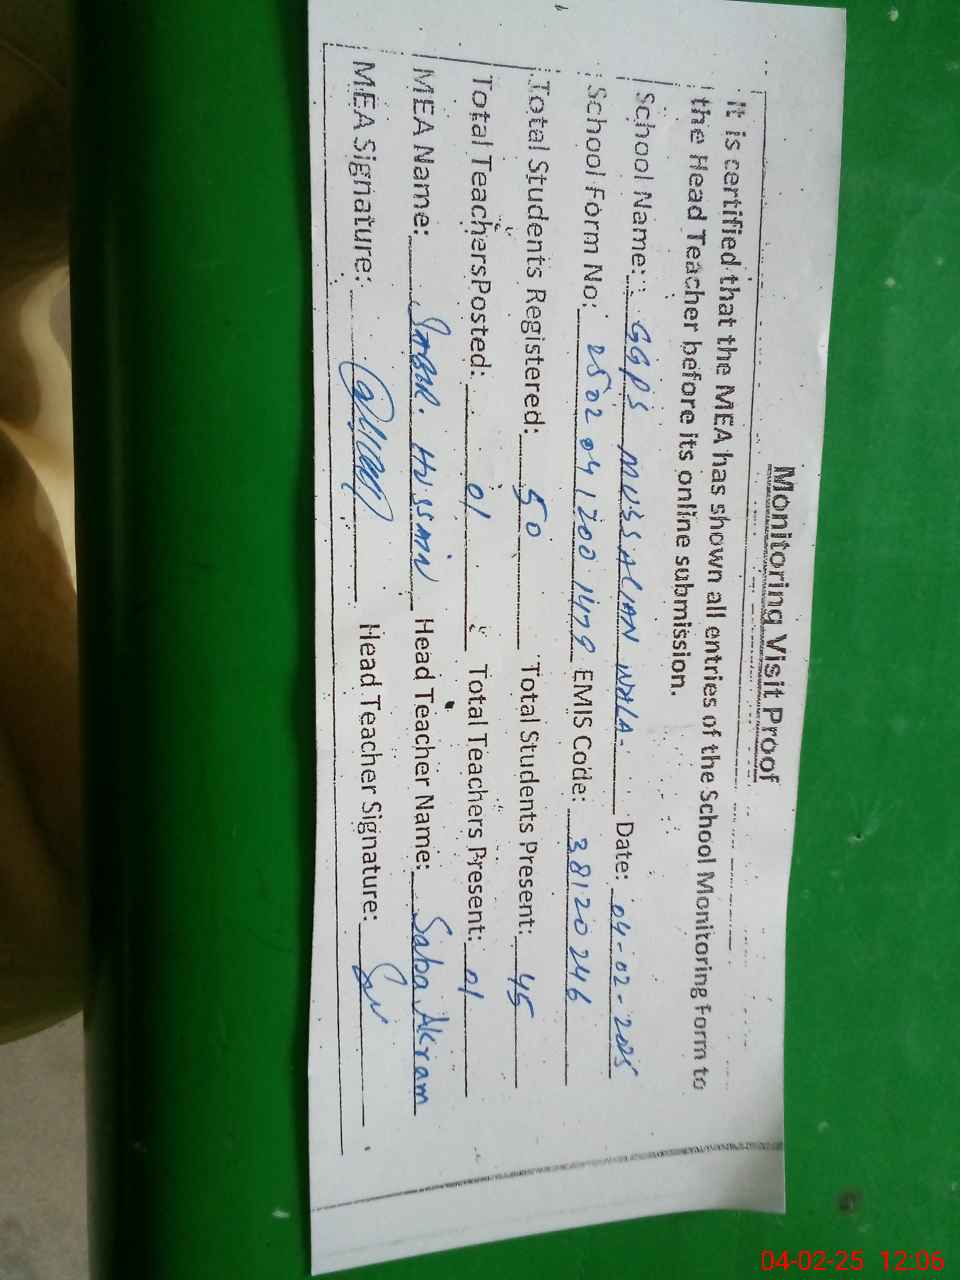 Monitoring Visit Proof
It is certified that the MEA has shown all entries of the School Monitoring Form to
the Head Teacher before its online submission.
School Name: GGPS MUSSALIAN WALA- Date: 04-02-2025
School Form No: 2502 04 1200 1479 EMIS Code: 38120246
Total Students Registered: 50 Total Students Present: 45
Total TeachersPosted: 01 Total Teachers Present: 01
MEA Name: SABIR. HUSSAIN Head Teacher Name: Saba Akram
MEA Signature: Head Teacher Signature:
04-02-25 12:06